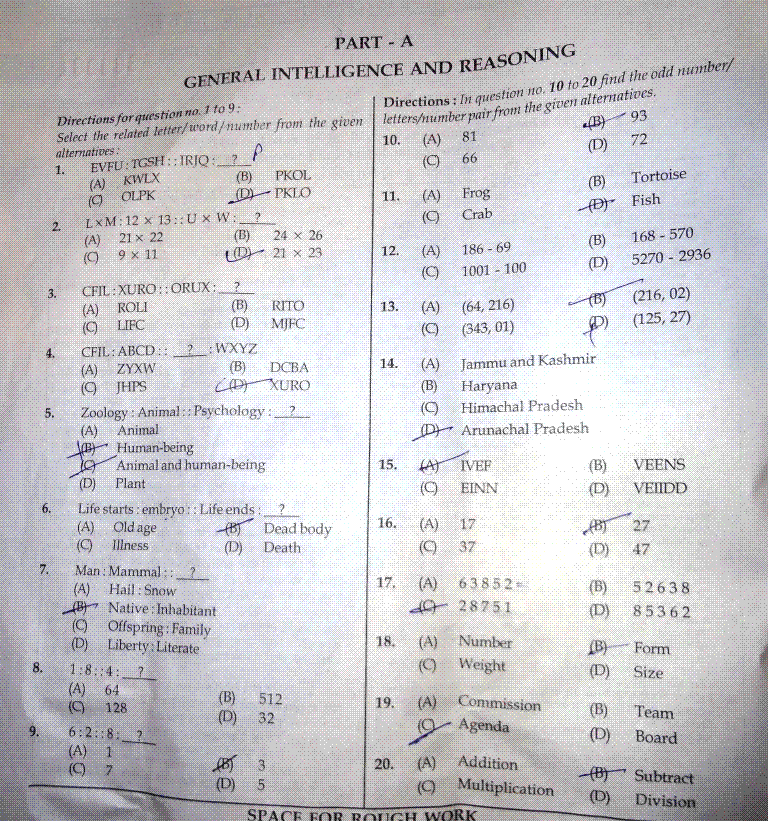 PART - A
GENERAL INTELLIGENCE AND REASONING
Directions for question no. 1 to 9 :
Select the related letter/word/number from the given
alternatives :
1. EVFU : TGSH : : IRJQ : ?
(A) KWLX (B) PKOL
(C) OLPK (D) PKLO
2. L×M : 12 × 13 : : U × W : ?
(A) 21 × 22 (B) 24 × 26
(C) 9 × 11 (D) 21 × 23
3. CFIL : XURO : : ORUX : ?
(A) ROLI (B) RITO
(C) LIFC (D) MJFC
4. CFIL : ABCD : : ? : WXYZ
(A) ZYXW (B) DCBA
(C) JHPS (D) XURO
5. Zoology : Animal : : Psychology : ?
(A) Animal
(B) Human-being
(C) Animal and human-being
(D) Plant
6. Life starts : embryo : : Life ends : ?
(A) Old age (B) Dead body
(C) Illness (D) Death
7. Man : Mammal : : ?
(A) Hail : Snow
(B) Native : Inhabitant
(C) Offspring : Family
(D) Liberty : Literate
8. 1 : 8 : : 4 : ?
(A) 64 (B) 512
(C) 128 (D) 32
9. 6 : 2 : : 8 : ?
(A) 1 (B) 3
(C) 7 (D) 5
Directions : In question no. 10 to 20 find the odd number/
letters/number pair from the given alternatives.
10. (A) 81 (B) 93
(C) 66 (D) 72
11. (A) Frog (B) Tortoise
(C) Crab (D) Fish
12. (A) 186 - 69 (B) 168 - 570
(C) 1001 - 100 (D) 5270 - 2936
13. (A) (64, 216) (B) (216, 02)
(C) (343, 01) (D) (125, 27)
14. (A) Jammu and Kashmir
(B) Haryana
(C) Himachal Pradesh
(D) Arunachal Pradesh
15. (A) IVEF (B) VEENS
(C) EINN (D) VEIIDD
16. (A) 17 (B) 27
(C) 37 (D) 47
17. (A) 6 3 8 5 2 (B) 5 2 6 3 8
(C) 2 8 7 5 1 (D) 8 5 3 6 2
18. (A) Number (B) Form
(C) Weight (D) Size
19. (A) Commission (B) Team
(C) Agenda (D) Board
20. (A) Addition (B) Subtract
(C) Multiplication (D) Division
SPACE FOR ROUGH WORK